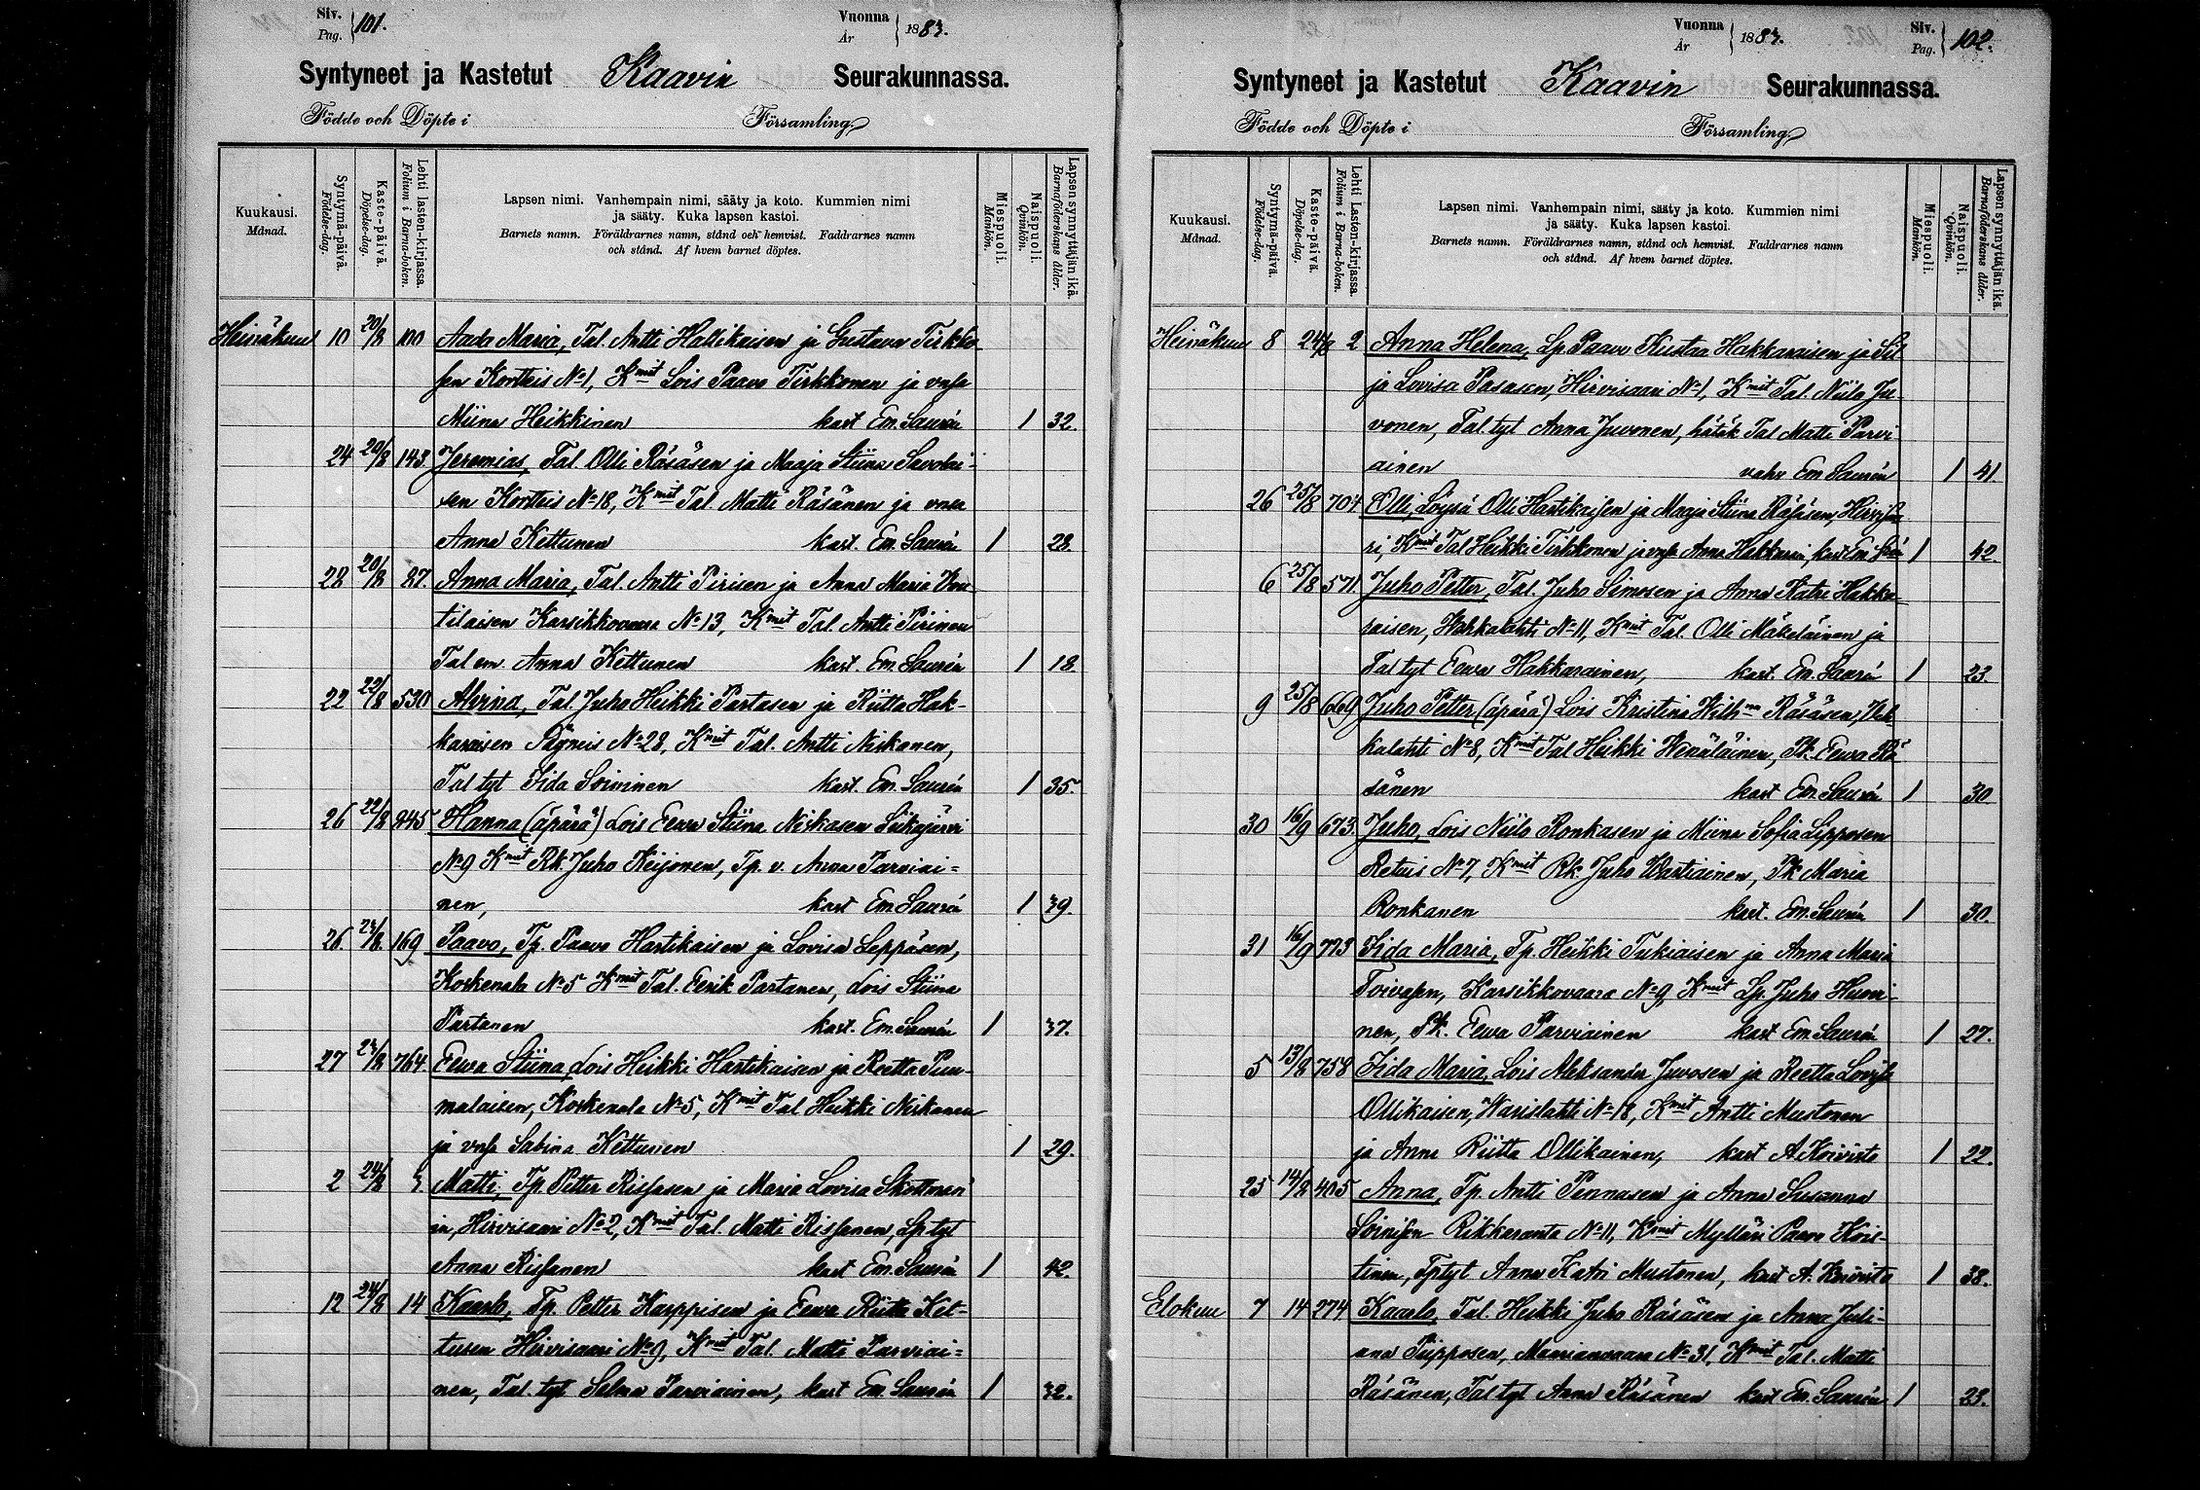 Siv. Pag. 101. Vuonna År 1883.
Syntyneet ja Kastetut Kaavin Seurakunnassa.
Födde och Döpte i Församling
Kuukausi. Månad.
Syntymä-päivä. Födelse-dag.
Kaste-päivä. Döpelse-dag.
Lehti lasten-kirjassa. Folium i Barna-boken.
Lapsen nimi. Vanhempain nimi, sääty ja koto. Kummien nimi
ja sääty. Kuka lapsen kastoi.
Barnets namn. Föräldrarnes namn, stånd och hemvist. Faddrarnes namn
och stånd. Af hvem barnet döptes.
Miespuoli. Mankön.
Naispuoli. Qvinkön.
Lapsen synnyttäjän ikä. Barnaföderskans ålder.
Heinäkuu 10 20/8 100 Aada Maria, Tal. Antti Hallikaisen ja Gustava Tirkko
sen Kortteis No 1, Kmit Lois Paavo Tirkkonen ja vmsa
Miina Heikkinen kast Em. Saurén 1 32.
24 20/8 143. Jeremias, Tal. Olli Räsäsen ja Maaja Stiina Savolai-
sen Kortteis No 18, Kmit Tal. Matti Räsänen ja vmsa
Anna Kettunen kast. Em. Saurén 1 28.
28 20/8 87. Anna Maria, Tal. Antti Pirisen ja Anna Maria Vou
tilaisen Karsikkovaara No 13, Kmit Tal. Antti Pirinen
Tal em. Anna Kettunen kast. Em. Saurén 1 18.
22 22/8 530 Alvina, Tal. Juho Heikki Partasen ja Riitta Hak-
karaisen No 28, Kmit Tal. Antti Niskanen,
Tal tyt Iida Soininen kast. Em. Saurén 1 35.
26 22/8 845 Hanna (äpärä) Lois Eewa Stiina Niskasen Siikajärvi
No 9 Kmit Rk. Juho Keijonen, Tp. v. Anna Parviai=
nen, kast Em. Saurén 1 39.
26 23/8 169 Paavo, Tp. Paavo Hartikaisen ja Lovisa Leppäsen,
Koskenala No 5 Kmit Tal. Eerik Partanen, Lois Stiina
Partanen kast. Em. Saurén 1 37.
27 23/8 764 Eewa Stiina, Lois Heikki Hartikaisen ja Reetta Pum-
malaisen, Koskenala No 5, Kmit Tal Heikki Niskanen
ja vmsa Sabina Kettunen 1 29.
2 24/8 Matti, Tp. Petter Rissasen ja Maria Lovisa Skottman
in, Hirvisaari No 2, Kmit Tal. Matti Rissanen, Lp tyt
Anna Rissanen kast Em. Saurén 1 42.
12 24/8 14 Kaarlo, Tp. Petter Karppisen ja Eewa Riitta Ket-
tusen Hirvisaari No 9, Kmit Tal. Matti Parviai=
nen, Tal. tyt Selma Parviainen, kast Em Saurén 1 32.
Vuonna År 1883. Siv. Pag. 102.
Syntyneet ja Kastetut Kaavin Seurakunnassa.
Födde och Döpte i Församling
Kuukausi. Månad.
Syntymä-päivä. Födelse-dag.
Kaste-päivä. Döpelse-dag.
Lehti Lasten-kirjassa. Folium i Barna-boken.
Lapsen nimi. Vanhempain nimi, sääty ja koto. Kummien nimi
ja sääty. Kuka lapsen kastoi.
Barnets namn. Föräldrarnes namn, stånd och hemvist. Faddrarnes namn
och stånd. Af hvem barnet döptes.
Miespuoli. Mankön.
Naispuoli. Qvinkön.
Lapsen synnyttäjän ikä. Barnaföderskans ålder.
Heinäkuu 8 24/8 2 Anna Helena, Lp. Paavo Kustaa Hakkaraisen ja Sil
ja Lovisa Pasasen, Hirvisaari No 1, Kmit Tal. Niilo Ju-
vonen, Tal. tyt Anna Juvonen, hätäk Tal Matti Parvi
ainen vahv Em. Saurén 1 41
26 25/8 704 Olli, Löysä Olli Hartikaisen ja Maaja Stiina Räsäsen, Hirvisaa
ri, Kmit Tal Heikki Tirkkonen ja vmsa Anna kast Em 1 42.
6 25/8 571 Juho Petter, Tal. Juho Simosen ja Anna Katri Hakka-
raisen, No 11, Kmit Tal. Olli Mäkeläinen ja
Tal tyt Eewa Hakkarainen, kast. Em. Saurén 1 23
9 25/8 669 Juho Petter (äpärä) Lois Kristina Räsäsen,
kalahti No 8, Kmit Tal Heikki Wenäläinen, Pk Eewa Rä
sänen kast Em. Saurén 1 30
30 16/9 673. Juho, Lois Niilo Ronkasen ja Miina Sofia Lipposen
Retuis No 7, Kmit Rk. Juho Wartiainen, Pk Maria
Ronkanen kast. Em. Saurén 1 30.
31 16/9 773 Iida Maria, Tp. Heikki Tukiaisen ja Anna Maria
Toivasen, Karsikkovaara No 9, Kmit Lp. Juho Huovi-
nen, Pk. Eewa Parviainen kast Em. Saurén 1 27.
5 13/8 758 Iida Maria, Lois Aleksander Juvosen ja Reetta Lovisa
Ollikaisen, Warislahti No 18, Kmit Antti Mustonen
ja Anna Riitta Ollikainen, kast A. Koivisto 1 22.
25 14/8 405 Anna, Tp. Antti Pennasen ja Anna Susanna
Soinisen Rikkaranta No 11, Kmit Mylläri Paavo Kois-
tinen, Tp tyt Anna Katri Mustonen, kast A. Koivisto 1 38.
Elokuu 7 14 274 Kaarlo, Tal. Heikki Juho Räsäsen ja Anna Juli-
ana Piipposen, No 31, Kmit Tal. Matti
Räsänen, Tal tyt Anna Räsänen kast Em. Saurén 1 23.